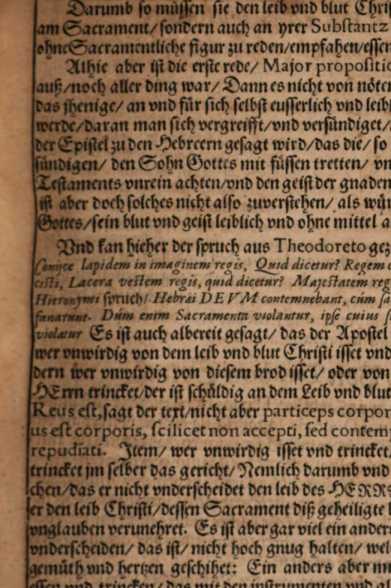 Darumb so müssen sie den leib vnd blut Chris
am Sacrament/sondern auch an yrer Substantz
ohne Sacramentliche figur zu reden/empfahen/essen
Alhie aber ist die erste rede/ Major propositio
auß/noch aller ding war/ Dann es nicht von nöten
das jhenige/ an vnd für sich selbst eusserlich vnd leib
werde/daran man sich vergreifft/vnd versündiget/
der Epistel zu den Hebreern gesagt wird/das die/ so
sündigen/ den Sohn Gottes mit füssen tretten/ vn
Testaments vnrein achten/vnd den geist der gnaden
ist aber doch solches nicht also zuverstehen/ als wür
Gottes/sein blut vnd geist leiblich vnd ohne mittel a
Vnd kan hieher der spruch aus Theodoreto gez
lapidem in imaginem regis, Quid dicetur? Regem
cisti, Lacera vestem regis, quid dicetur? Majestatem reg
Hieronymi spruch/ Hebræi DEVM contemnebant, cùm sa
Dum enim Sacramenta violantur, ipse cuius s
violatur Es ist auch albereit gesagt/ das der Apostel
wer vnwirdig von dem leib vnd blut Christi isset vnd
dern wer vnwirdig von diesem brod isset/ oder von
HErrn trincket/der ist schüldig an dem Leib vnd blut
Reus est,sagt der text/nicht aber particeps corpor
us est corporis, scilicet non accepti, sed contem
repudiati. Item/ wer vnwirdig isset vnd trincket,
trincket jm selber das gericht/ Nemlich darumb vnd
chen/das er nicht vnderscheidet den leib des HERR
er den leib Christi/dessen Sacrament diß geheiligte b
vnglauben verunehret. Es ist aber gar viel ein ander
vnderscheiden/ das ist/ nicht hoch gnug halten/ wel
gemüth vnd hertzen geschihet: Ein anders aber m
essen vnd trincken/das mit den instrumenten vnd